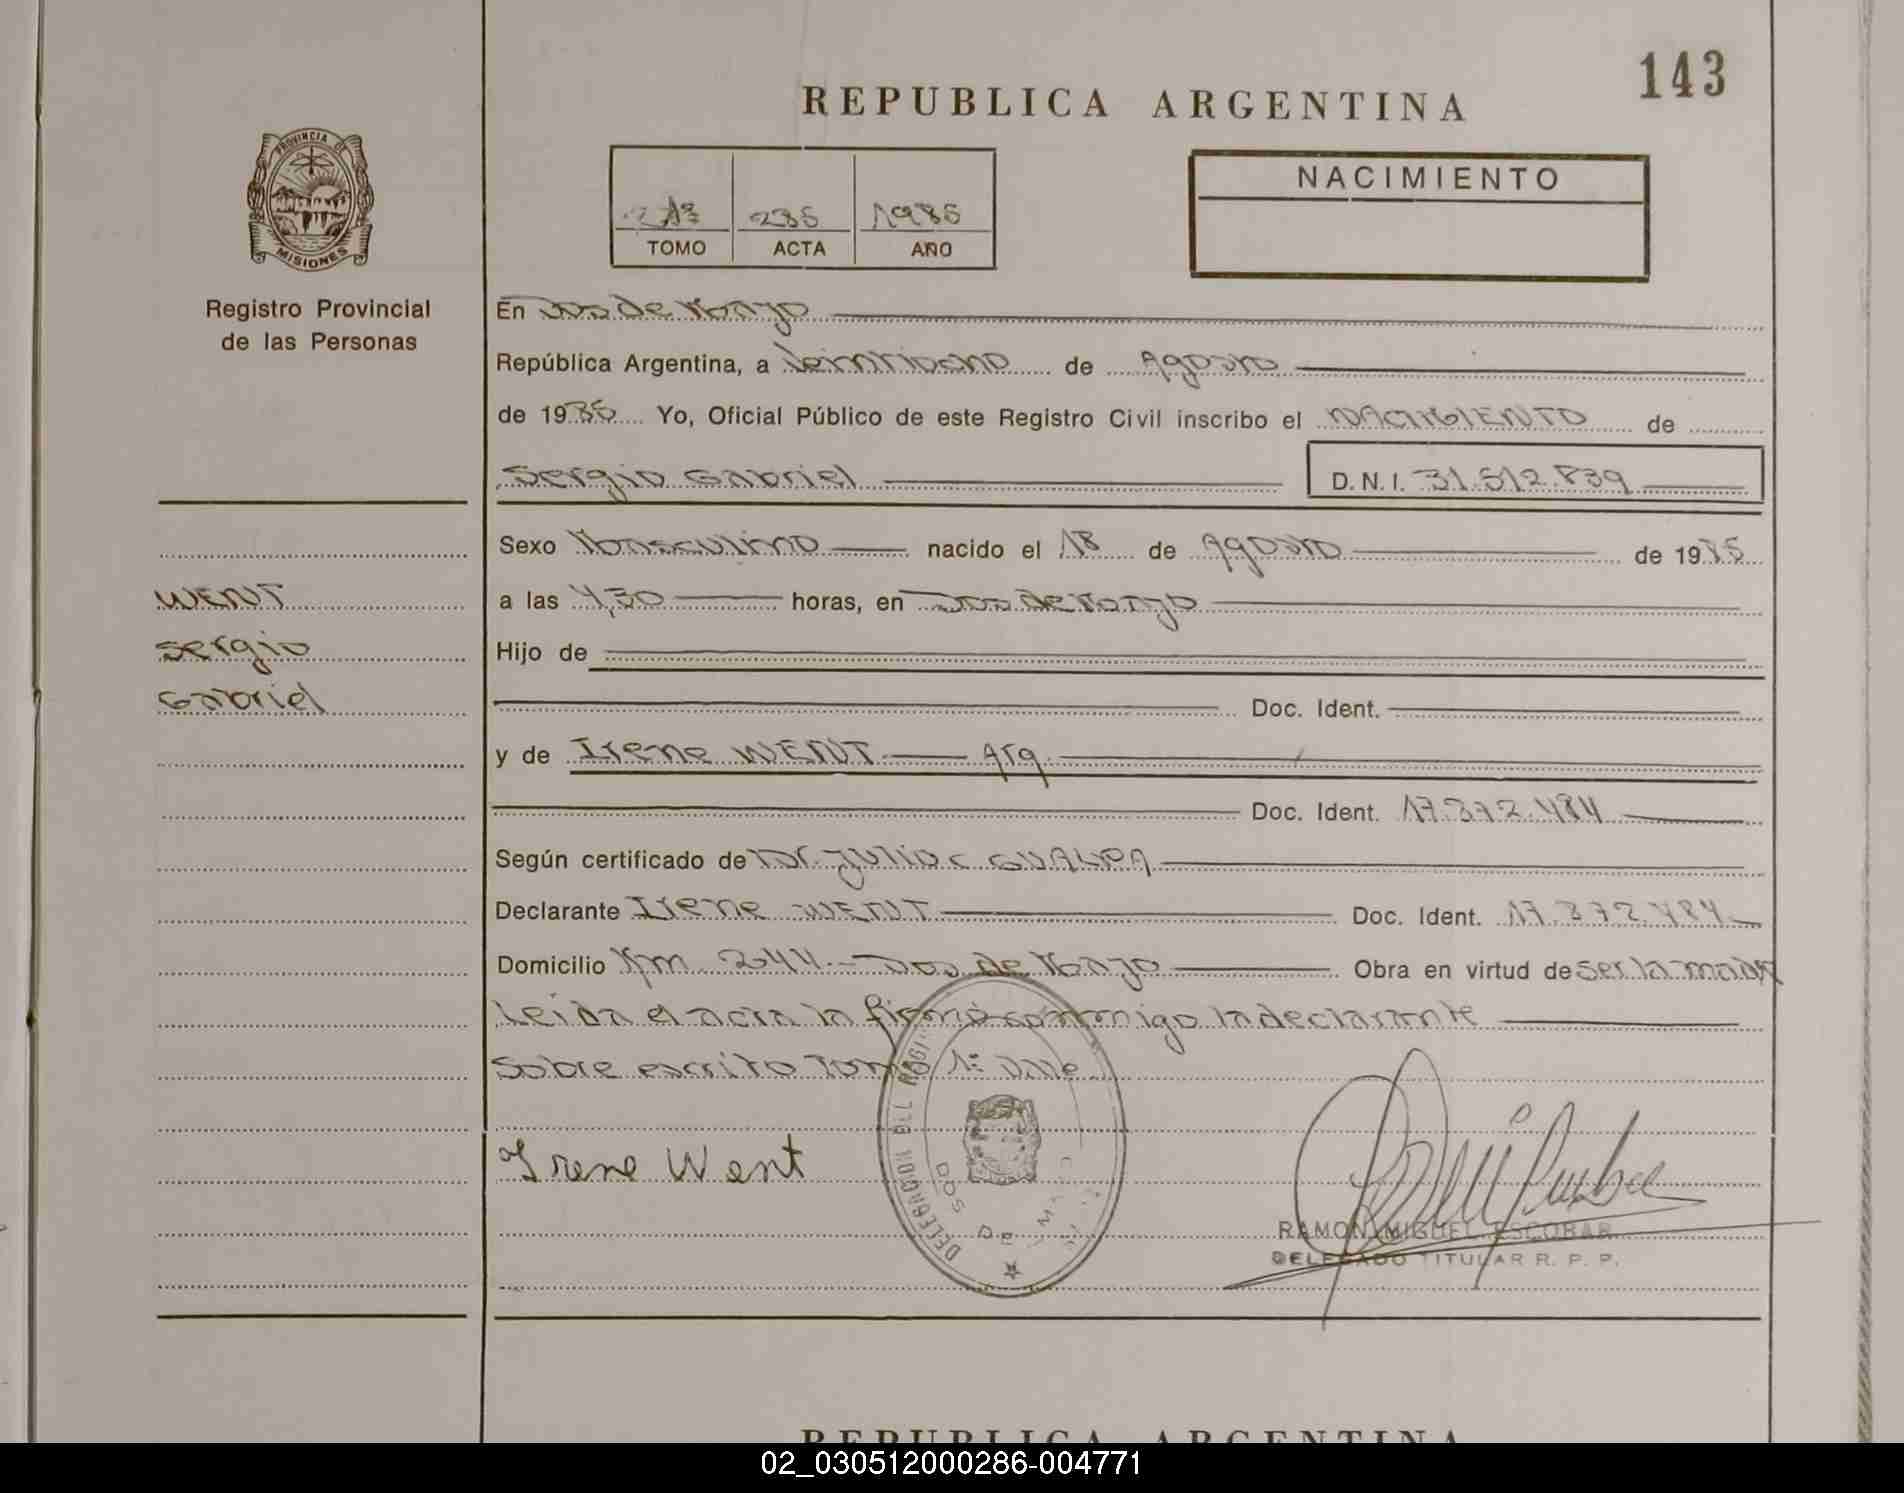 143
REPUBLICA ARGENTINA
PROVINCIA DE
MISIONES
Registro Provincial
de las Personas
NACIMIENTO
235 1985
TOMO ACTA AÑO
En Dos de Mayo
República Argentina, a Veintiocho de Agosto
de 1985 Yo, Oficial Público de este Registro Civil inscribo el NACIMIENTO de
Sergio Gabriel D.N.I. 31.512.839
Sexo Masculino nacido el 18 de Agosto de 1985
WENT
a las 4,30 horas, en Dos de Mayo
Sergio
Hijo de
Gabriel
Doc. Ident.
y de Irene WENT Arg.
Doc. Ident. 17.372.484
Según certificado de Dr. Julio C GUALPA
Declarante Irene WENT Doc. Ident. 17.372.484
Domicilio Km 244 - Dos de Mayo Obra en virtud de ser la madre
Leida el acta la firmó conmigo la declarante
Sobre escrito Tomo 1º Vale
Irene Went
DELEGACION DEL REGIS
DOS DE MAYO
RAMON MIGUEL ESCOBAR
DELEGADO TITULAR R. P. P.
REPUBLICA ARGENTINA
02_030512000286-004771